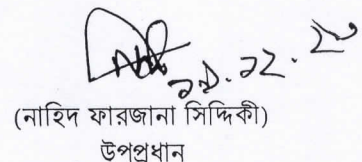 ২৯.১২.২০
(নাহিদ ফারজানা সিদ্দিকী)
উপপ্রধান